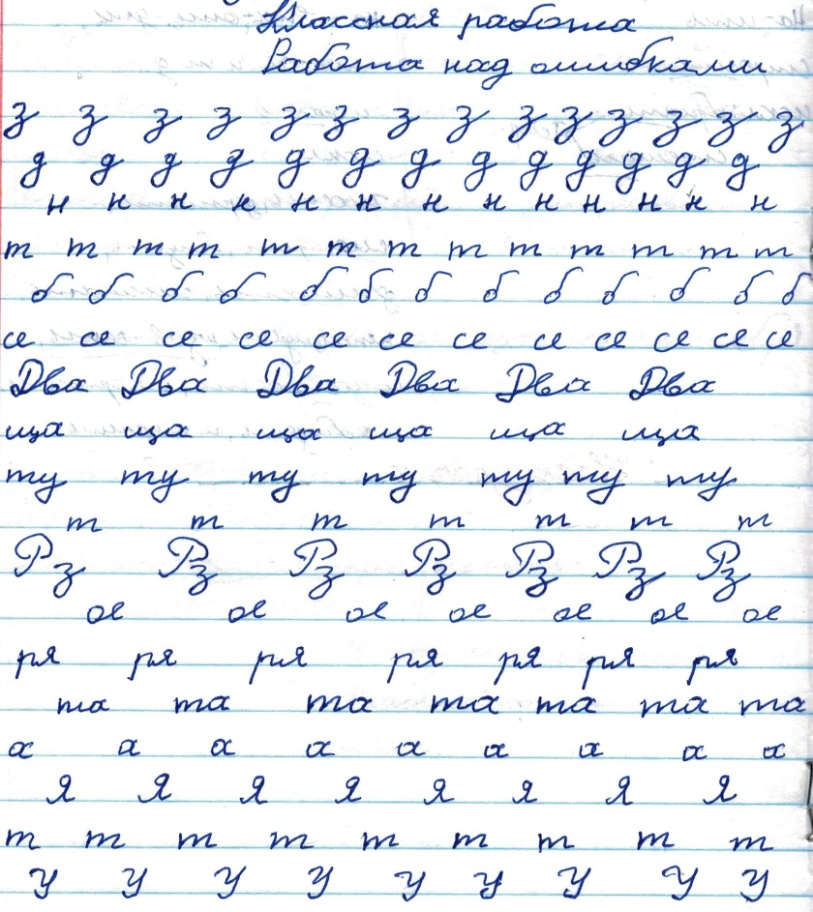 Классная работа
Работа над ошибками
з з з з з з з з з з з з з з
д д д д д д д д д д д д д
н н н н н н н н н н н н н
т т т т т т т т т т т т т
б б б б б б б б б б б б б
се се се се се се се се се се се се
Два Два Два Два Два Два
ща ща ща ща ща ща
ту ту ту ту ту ту ту
т т т т т т т
Рз Рз Рз Рз Рз Рз Рз
ое ое ое ое ое ое ое
ря ря ря ря ря ря ря
та та та та та та та
а а а а а а а а а
Я Я Я Я Я Я Я Я
т т т т т т т т т
у у у у у у у у у